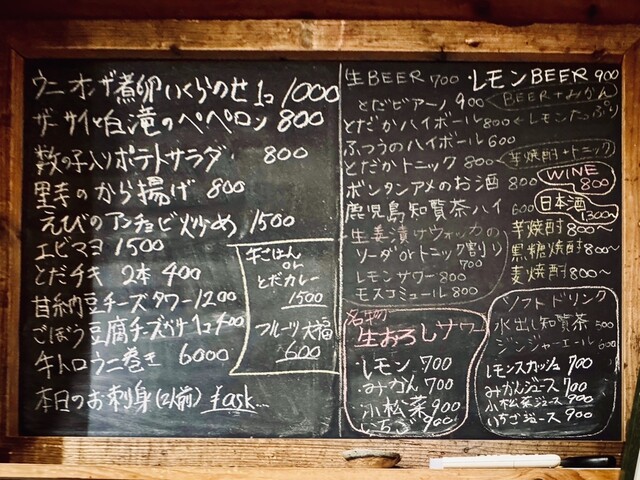 ウニ オン ザ 煮卵 いくらのせ 1コ 1000
ザーサイと白滝のペペロン 800
数の子入りポテトサラダ 800
里芋のから揚げ 800
えびのアンチョビ炒め 1500
エビマヨ 1500
とだチキ 2本 400
甘納豆チーズタワー 1200
ごぼう豆腐チーズ 1コ
牛トロウニ巻き 6000
本日のお刺身(2人前) ¥ask...
牛ごはん
or
とだカレー
1500
フルーツ大福
600
生BEER 700
レモンBEER 900
とだビアーノ 900 BEER+みかん
とだかハイボール 800〜 レモンたっぷり
ふつうのハイボール 600
とだかトニック 800〜 芋焼酎+トニック
ボンタンアメのお酒 800
鹿児島知覧茶ハイ 600
生姜漬けウォッカの
ソーダ or トニック割り
700
レモンサワー 800
モスコミュール 800
WINE
800〜
日本酒
1300〜
芋焼酎 800〜
黒糖焼酎 800〜
麦焼酎 800〜
名物
生おろしサワー
レモン 700
みかん 700
小松菜 900
いちご 900
ソフトドリンク
水出し知覧茶 500
ジンジャーエール 600
レモンスカッシュ 700
みかんジュース 700
小松菜ジュース 900
いちごジュース 900